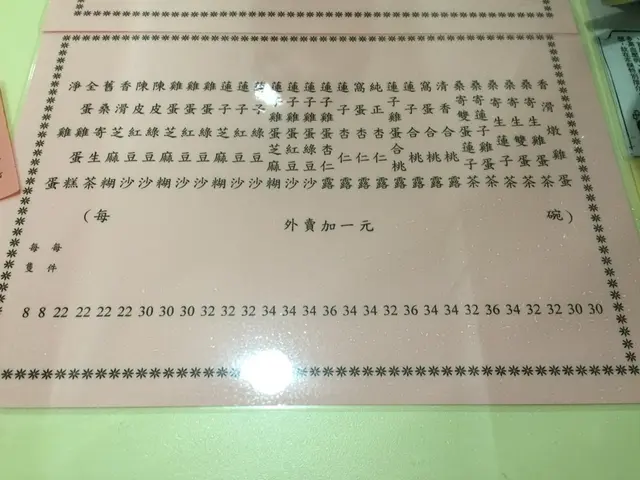 香滑燉雞蛋
桑寄生雞蛋茶
桑寄生雙蛋茶
桑寄生蓮子茶
桑寄蓮子雞蛋茶
桑寄雙蛋蓮子茶
清香合桃露
窩蛋合桃露
蓮子合桃露
蓮子雞蛋合桃露
純正杏仁露
窩蛋杏仁露
蓮子杏仁露
蓮子雞蛋杏仁露
蓮子雞蛋綠豆沙
蓮子雞蛋紅豆沙
蓮子雞蛋芝麻糊
蓮子綠豆沙
蓮子紅豆沙
蓮子芝麻糊
雞蛋綠豆沙
雞蛋紅豆沙
雞蛋芝麻糊
陳皮綠豆沙
陳皮紅豆沙
香滑芝麻糊
舊桑寄生茶
全蛋雞蛋糕
淨雞蛋
(每 碗)
外賣加一元
每件
每隻
8 8 22 22 22 22 30 30 30 32 32 32 34 34 34 36 34 34 32 36 34 34 32 36 34 32 32 30 30